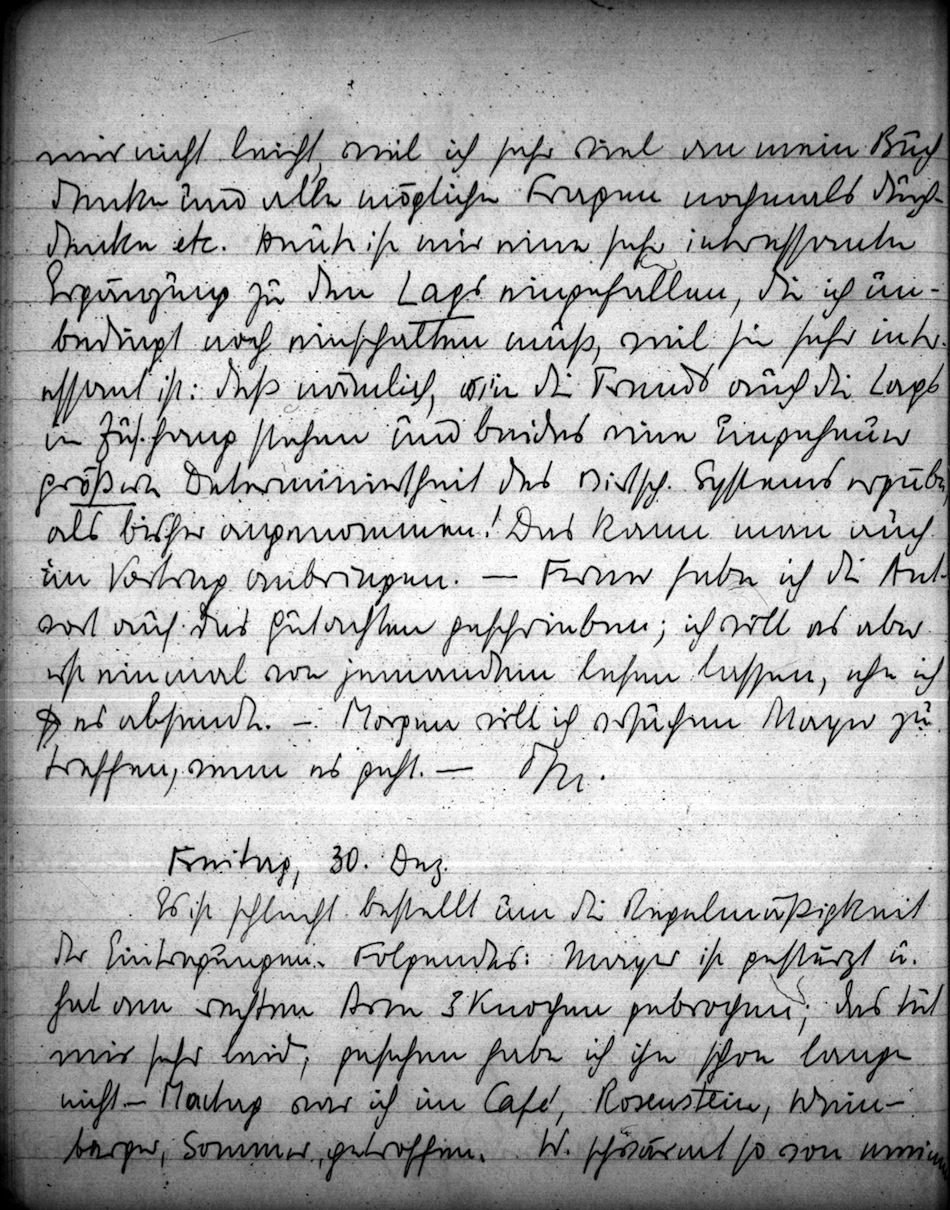 mir nicht leicht, weil ich sehr viel an mein Buch
denke und alle möglichen Fragen nochmals durch-
denke etc. Heute ist mir eine sehr interessante
Ergänzung zu den Lags eingefallen, die ich un-
bedingt noch einschalten muß, weil sie sehr inter-
essant ist: daß nämlich, wie die Trends auch die Lags
in Zus.hang stehen und beides eine ungeheuer
größere Determiniertheit des wirtsch. Systems ergübe
als bisher angenommen! Das kann man auch
im Vortrag anbringen. — Ferner habe ich die Ant-
wort auf das Gutachten geschrieben; ich will es aber
erst einmal von jemandem lesen lassen, ehe ich
es absende. — Morgen will ich versuchen Mayer zu
treffen, wenn es geht. —
Freitag, 30. Dez.
Es ist schlecht bestellt um die Regelmäßigkeit
der Eintragungen. Folgendes: Mayer ist gestürzt u.
hat am rechten Arm 3 Knochen gebrochen; das tut
mir sehr leid; gesehen habe ich ihn schon lange
nicht — Montag war ich im Café, Rosenstein, Wein-
berger, Sommer, getroffen. W. schwärmt so von meinem